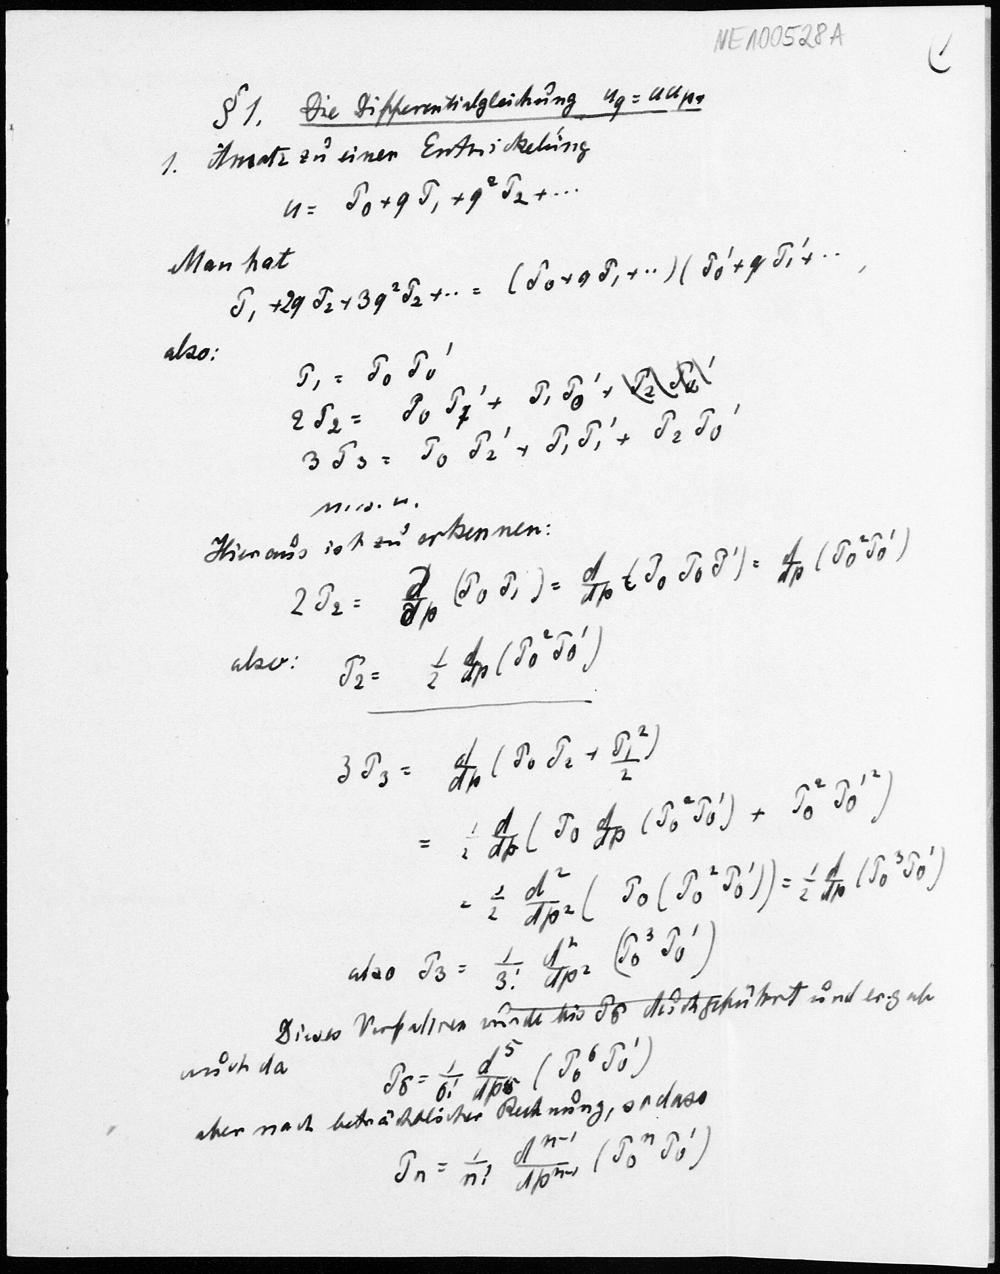 NE100528A
1
§ 1. Die Differentialgleichung u_q = u u_p.
1. Ansatz zu einer Entwickelung
u = T₀ + q T₁ + q² T₂ + ...
Man hat
T₁ + 2q T₂ + 3q² T₂ + .. = (T₀ + q T₁ + ..) (T₀' + q T₁' + .. ,
also:
T₁ = T₀ T₀'
2 T₂ = T₀ T₁' + T₁ T₀' +
3 T₃ = T₀ T₂' + T₁ T₁' + T₂ T₀'
u.s.w.
Hieraus ist zu erkennen:
2 T₂ = d/dp (T₀ T₁) = d/dp (T₀ T₀ T') = d/dp (T₀² T₀')
also: T₂ = 1/2 d/dp (T₀² T₀')
3 T₃ = d/dp (T₀ T₂ + T₁²/2)
= 1/2 d/dp ( T₀ d/dp (T₀² T₀') + T₀² T₀'² )
= 1/2 d²/dp² ( T₀ (T₀² T₀')) = 1/2 d/dp (T₀³ T₀')
also T₃ = 1/3! d²/dp² (T₀³ T₀')
Dieses Verfahren wurde bis T₆ durchgeführt und ergab
auch da T₆ = 1/6! d⁵/dp⁵ (T₀⁶ T₀')
aber nach beträchtlicher Rechnung, sodass
Tₙ = 1/n! dⁿ⁻¹/dpⁿ⁻¹ (T₀ⁿ T₀')